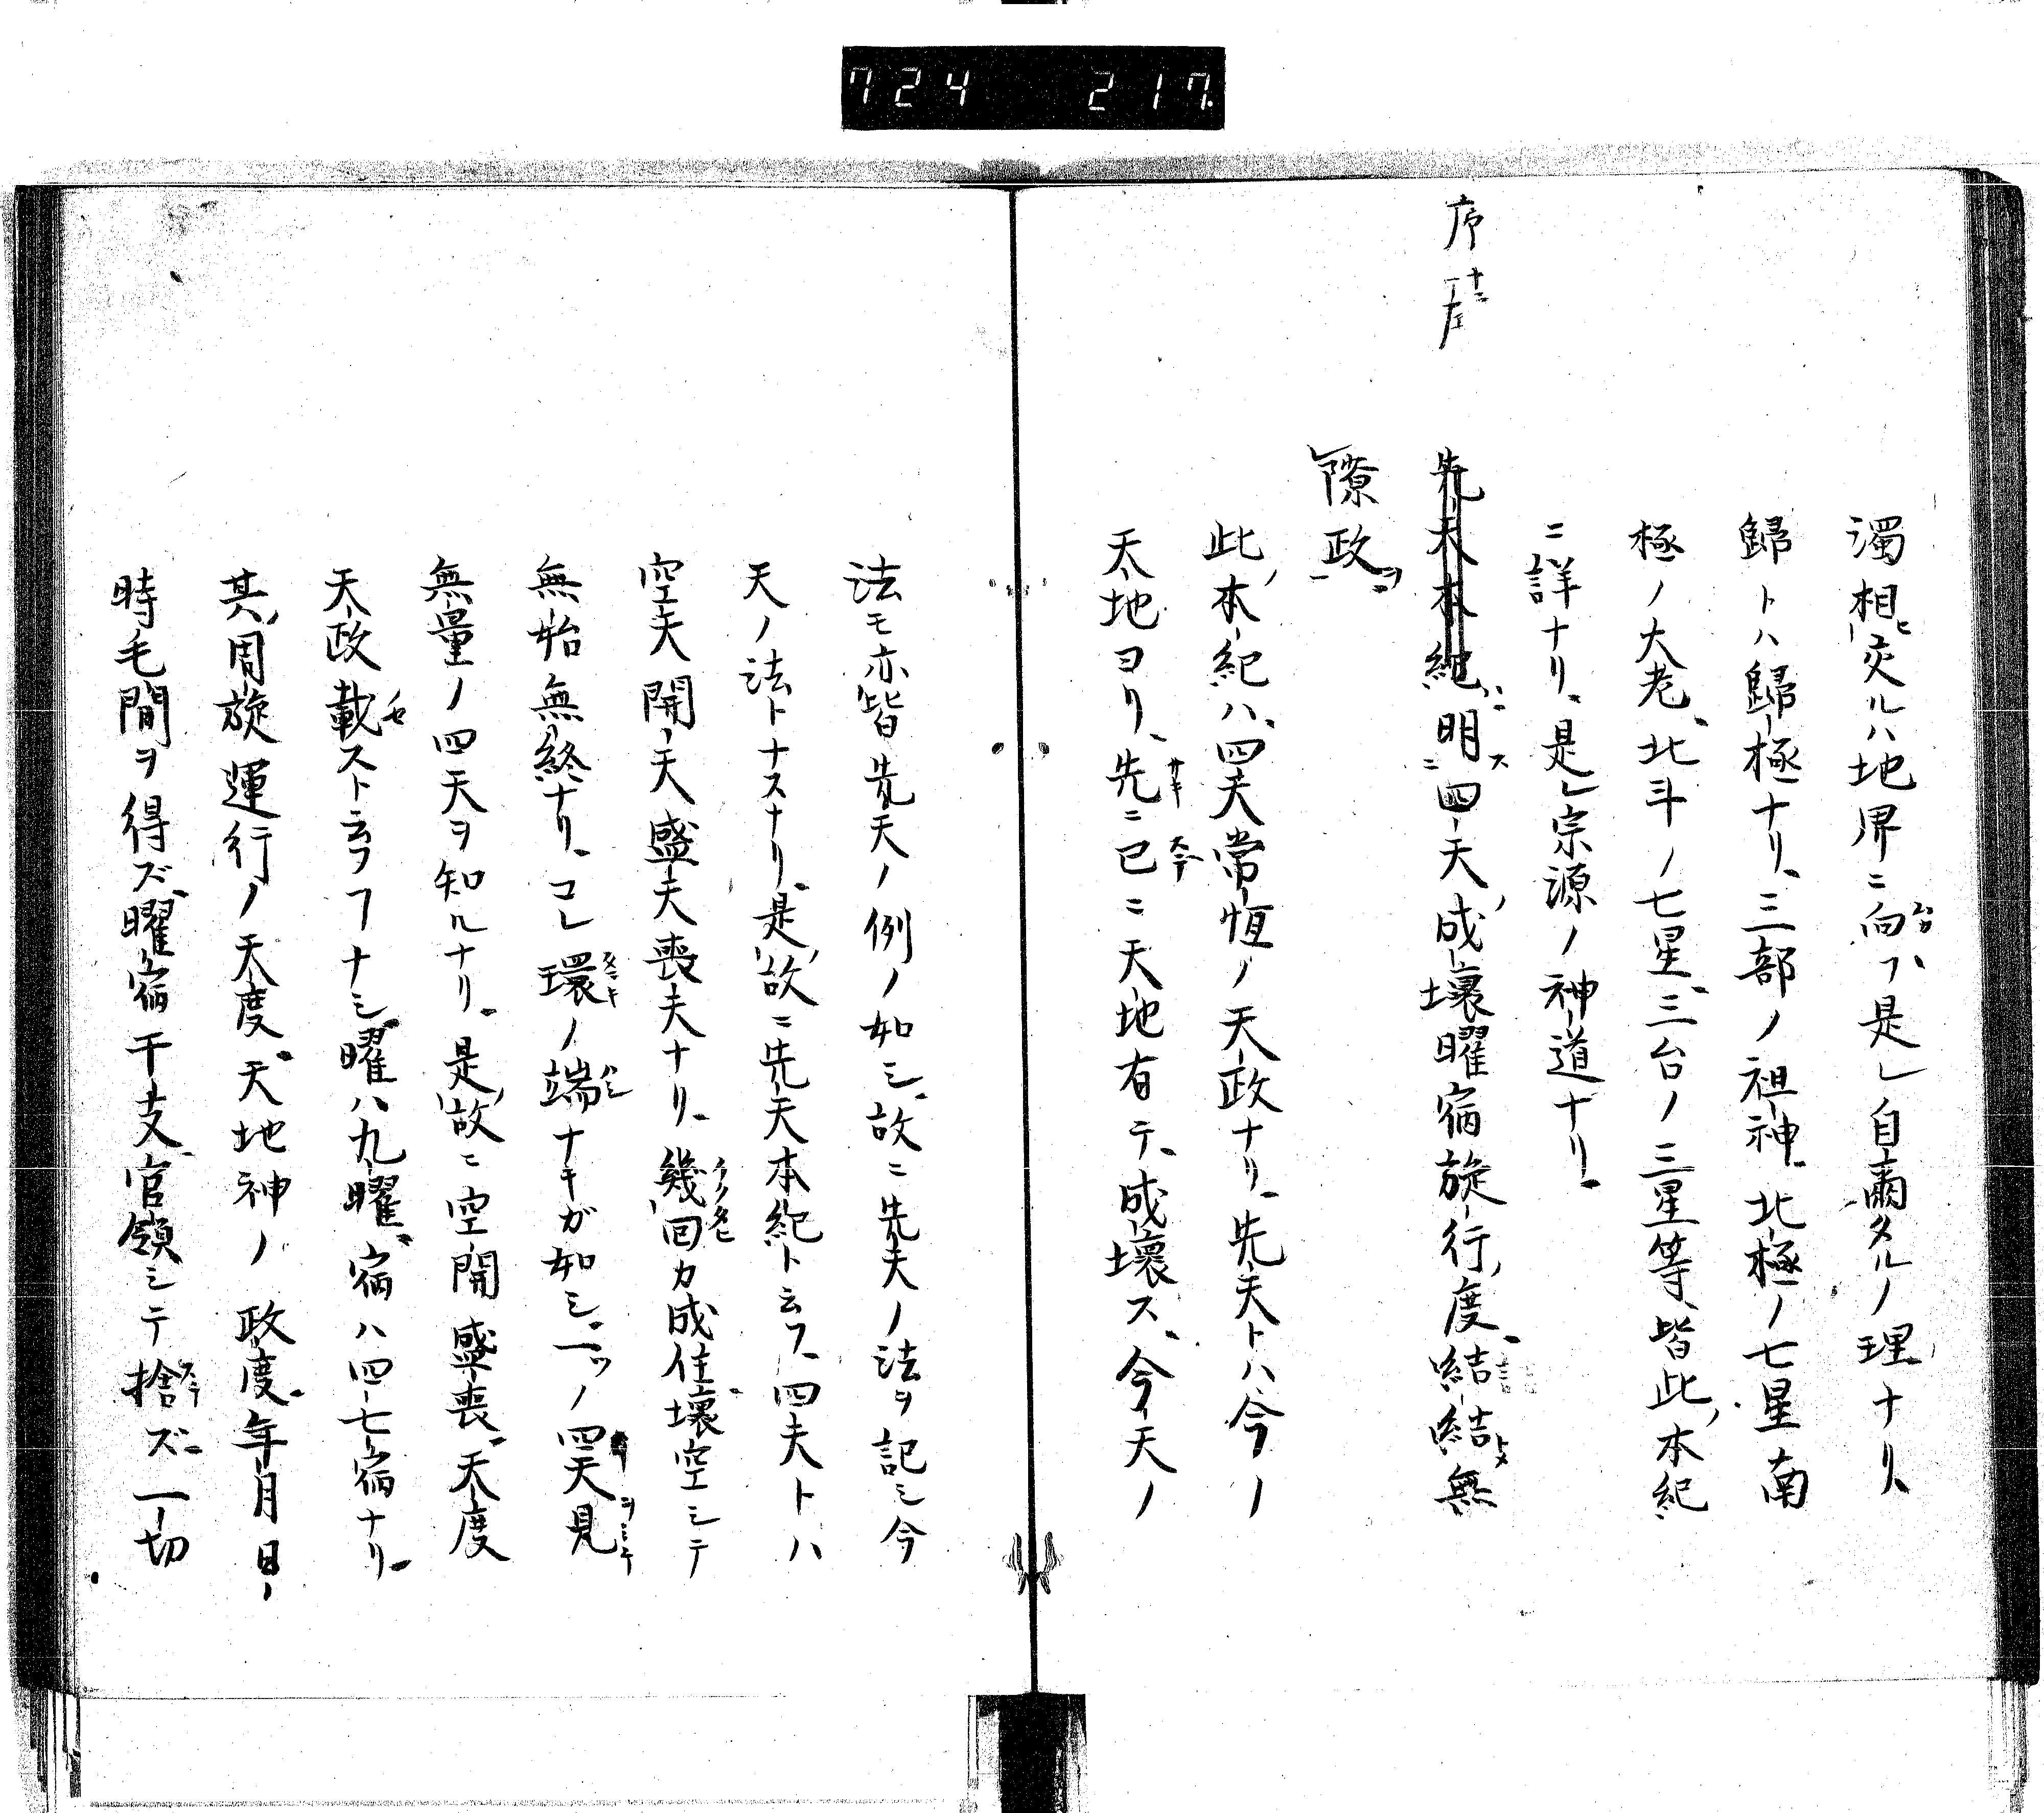 724 217
濁相交ルハ地界ニ向フ、是レ自爾タルノ理ナリ、
歸トハ歸極ナリ、三部ノ祖神、北極ノ七星南
極ノ大老、北斗ノ七星、三台ノ三星等、皆此ノ本紀
ニ詳ナリ、是レ宗源ノ神道ナリ、
序
先天本紀、明四天ノ成壞曜宿旋行ノ度、結結無
隙政
此ノ本紀ハ、四天常恒ノ天政ナリ、先天トハ今ノ
天地ヨリ、先ニ已ニ天地有テ、成壞ス、今天ノ
法モ亦皆先天ノ例ノ如シ、故ニ先天ノ法ヲ記シ今
天ノ法トナスナリ、是ノ故ニ先天本紀ト云フ、四天トハ
空天開天盛天喪天ナリ、幾回カ成住壞空シテ
無始無終ナリ、コレ環ノ端ナキガ如シ、一ツノ四天見
無量ノ四天ヲ知ルナリ、是ノ故ニ空開盛喪、天度
天政載スト云フナシ、曜ハ九曜、宿ハ四七宿ナリ、
其ノ周旋運行ノ天度、天地神ノ政度、年月日ノ
時毛間ヲ得ズ、曜宿干支、官領シテ捨ズ、一切